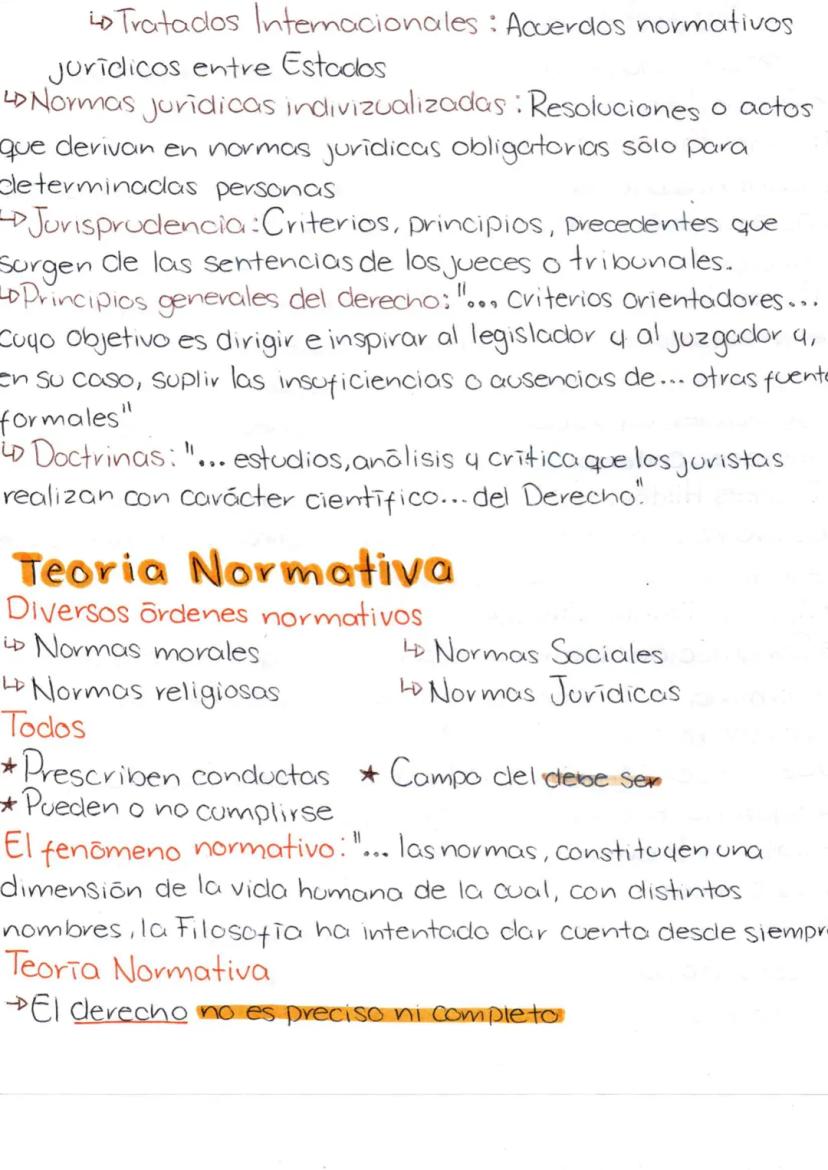 ↳ Tratados Internacionales : Acuerdos normativos
jurídicos entre Estados
↳ Normas jurídicas indivizualizadas : Resoluciones o actos
que derivan en normas jurídicas obligatorias sólo para
determinadas personas
↳ Jurisprudencia : Criterios, principios, precedentes que
surgen de las sentencias de los jueces o tribunales.
↳ Principios generales del derecho: "... criterios orientadores...
cuyo objetivo es dirigir e inspirar al legislador y al juzgador y,
en su caso, suplir las insuficiencias o ausencias de... otras fuente
formales"
↳ Doctrinas: "... estudios, análisis y crítica que los juristas
realizan con carácter científico... del Derecho."
Teoria Normativa
Diversos órdenes normativos
↳ Normas morales ↳ Normas Sociales
↳ Normas religiosas ↳ Normas Jurídicas
Todos
★ Prescriben conductas ★ Campo del debe ser
★ Pueden o no cumplirse
El fenómeno normativo: "... las normas, constituyen una
dimensión de la vida humana de la cual, con distintos
nombres, la Filosofía ha intentado dar cuenta desde siempre
Teoría Normativa
→ El derecho no es preciso ni completo